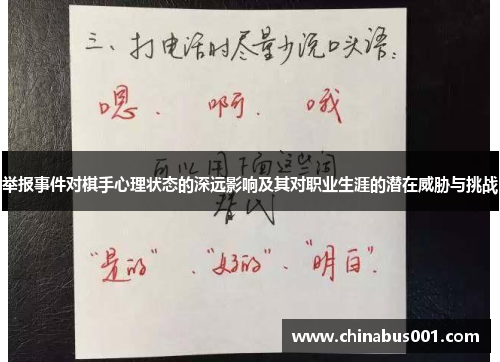 三、打电话时尽量少说口头语：
嗯. 啊. 哦
可以用下面这些词
举报事件对棋手心理状态的深远影响及其对职业生涯的潜在威胁与挑战
替代
“是的”、“好的”、“明白”.
www.chinabus001.com